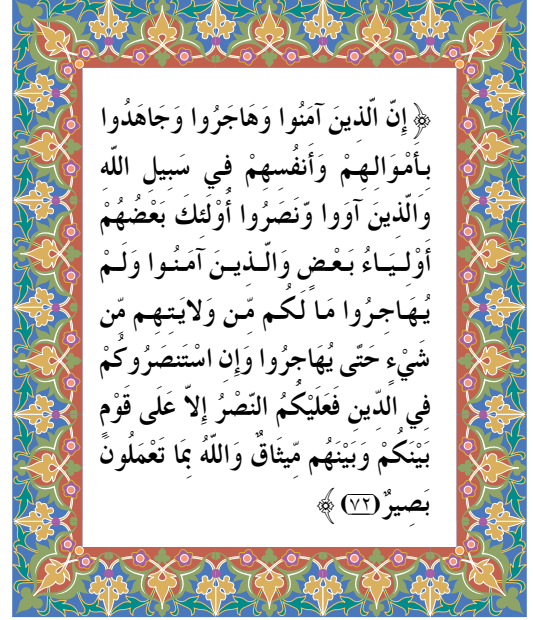 ﴿ إِنّ الّذينَ آمَنُوا وَهَاجَرُوا وَجَاهَدُوا
بِأَمْوَالِهِمْ وَأَنفُسِهِمْ في سَبِيلِ اللّهِ
وَالّذينَ آوَوا وّنَصَرُوا أُوْلئكَ بَعْضُهُمْ
أَوْلِيَاءُ بَعْضٍ وَالّذِينَ آمَنُوا وَلَمْ
يُهَاجِرُوا مَا لَكُم مّن وَلايَتِهِم مّن
شَيْءٍ حَتّى يُهَاجِرُوا وَإِنِ اسْتَنصَرُوكُمْ
فِي الدّينِ فَعَلَيْكُمُ النّصْرُ إِلاّ عَلَى قَوْمٍ
بَيْنَكُمْ وَبَيْنَهُم مّيثَاقٌ وَاللّهُ بِمَا تَعْمَلُونَ
بَصِيرٌ (٧٢) ﴾